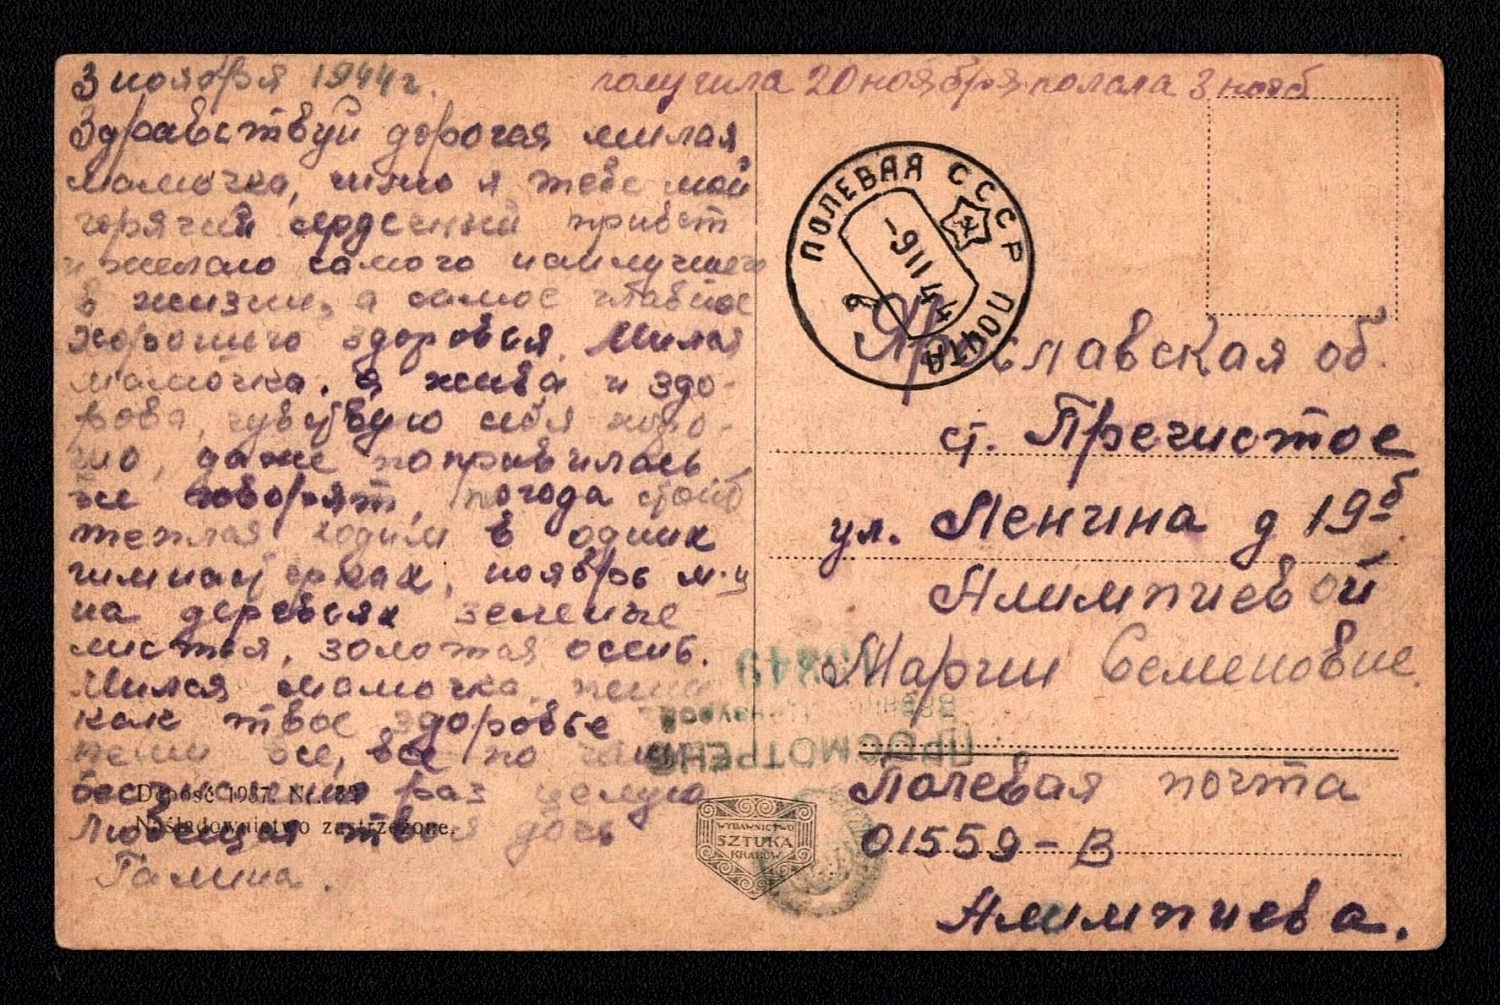 3 ноября 1944г.
получила 20 ноября послала 3 нояб
Здравствуй дорогая милая
мамочка, шлю я тебе мой
горячий сердечный привет
и желаю самого наилучшего
в жизни, а самое главное
хорошего здоровья. Милая
мамочка. я жива и здо-
рова, чувствую себя хоро-
шо, даже поправилась
же говорят, погода стоит
теплая ходим в одних
гимнастерках, ноябрь м-ц
на деревьях зеленые
листья, золотая осень.
Милая мамочка, пиши
как твое здоровье
пиши все, все по
раз целую
Любящая твоя дочь
Галина.
Dolność 1937. Nr.
Naśladownictwo zastrzeżone.
WYDAWNICTWO
SZTUKA
KRAKÓW
ПОЛЕВАЯ ПОЧТА СССР
-9 11 44
б
Ярославская об.
ст. Пречистое
ул. Ленина д 19б
Алимпиевой
Марии Семеновне.
ПРОСМОТРЕНО
Военной Цензурой
Полевая почта
01559-В
Алимпиева.